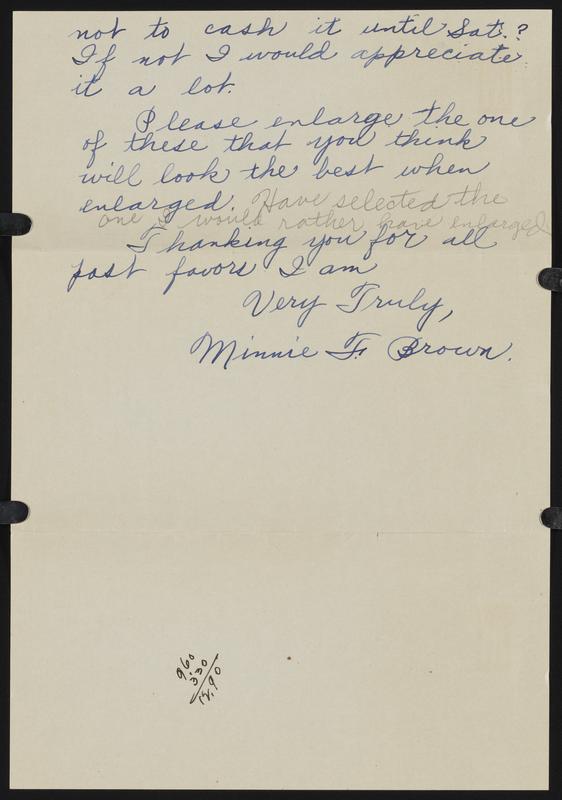 not to cash it until Sat.?
If not I would appreciate
it a lot.
Please enlarge the one
of these that you think
will look the best when
enlarged. Have selected the
one I would rather have enlarged
Thanking you for all
past favors I am
Very Truly,
Minnie F. Brown.
960
3.30
12.90